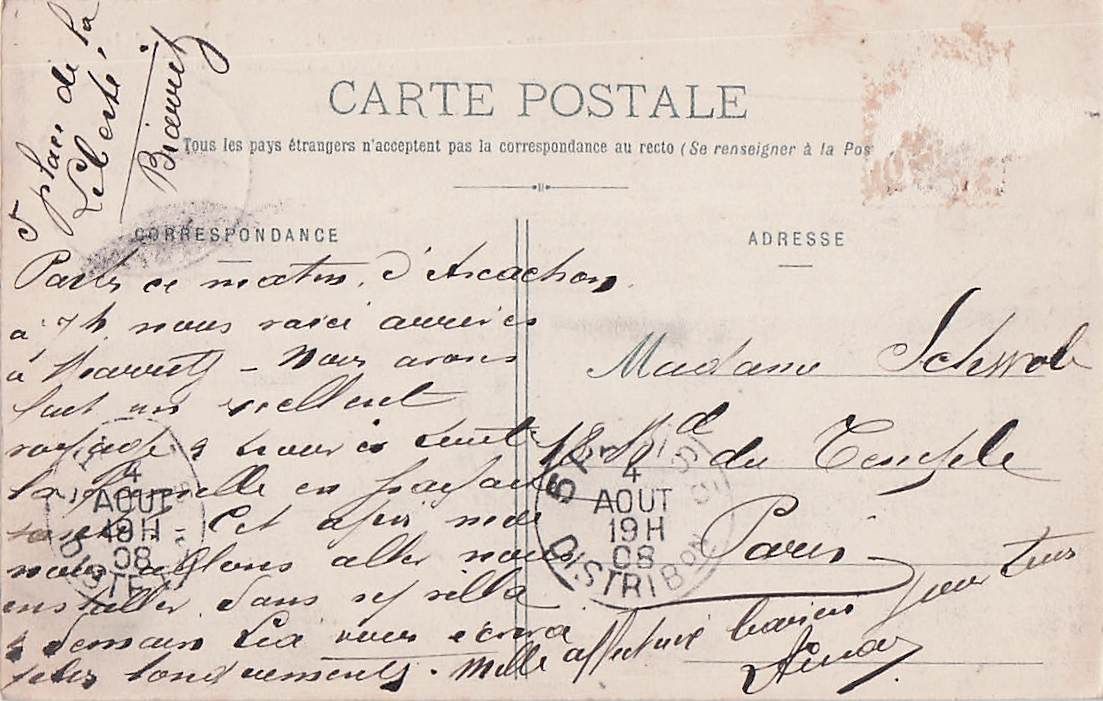 5 place de la
Liberté,
Biarritz
CARTE POSTALE
Tous les pays étrangers n'acceptent pas la correspondance au recto (Se renseigner à la Pos
CORRESPONDANCE
ADRESSE
Partis ce matin, d'Arcachon
à 7h nous voici arrivées
à Biarritz – Nous avons
fait un excellent
voyage & trouvé toute
la famille en parfaite
santé. Cet après midi
nous allons aller nous
installer dans villa
& demain Léa vous écrira
plus longuement. Mille affectueux baisers pour tous
Madame Schwob
18 Bd du Temple
Paris
4
AOUT
19H
08
DISTRIBON
4
AOUT
19H
08
DISTRIBON